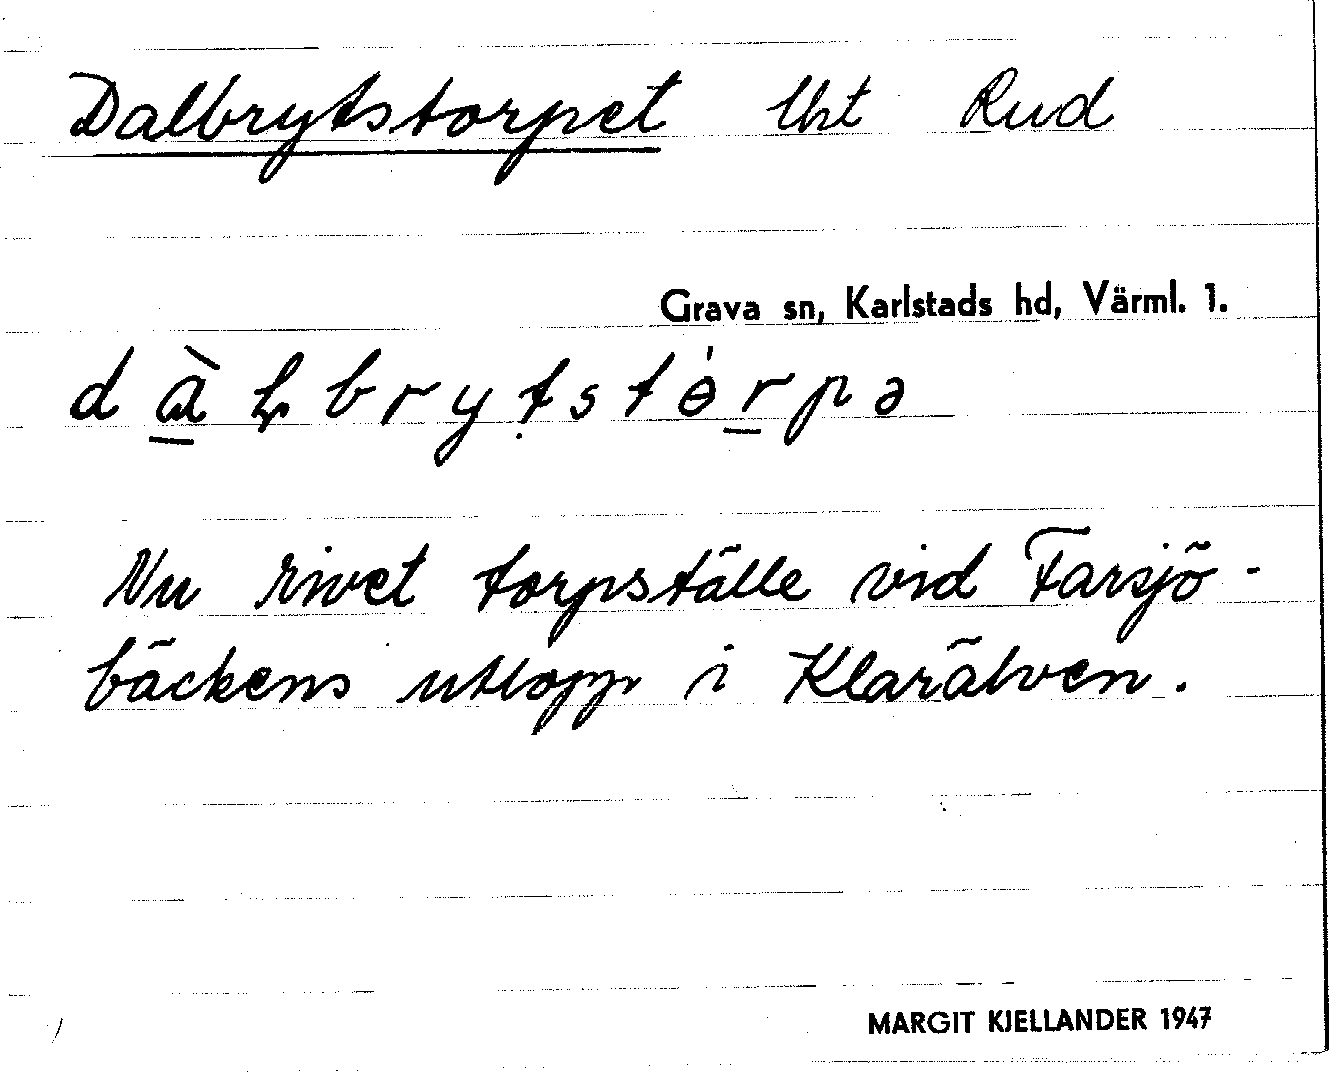 Dalbrytstorpet Urt Rud
Grava sn, Karlstads hd, Värml. 1.
Nu rivet torpställe vid Farsjö-
bäckens utlopp i Klarälven.
MARGIT KJELLANDER 1947